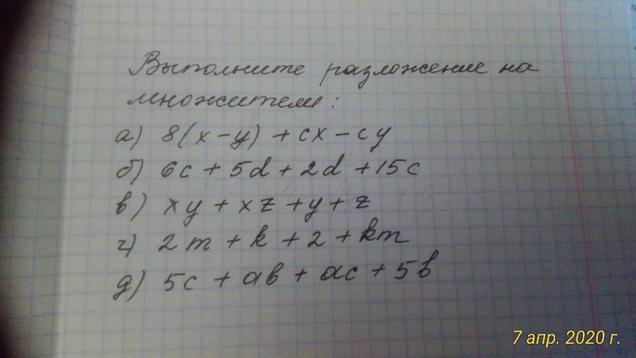 Выполните разложение на
множители:
а) 8(x-y) + cx - cy
б) 6c + 5d + 2d + 15c
в) xy + xz + y + z
г) 2m + k + 2 + km
д) 5c + ab + ac + 5b
7 апр. 2020 г.